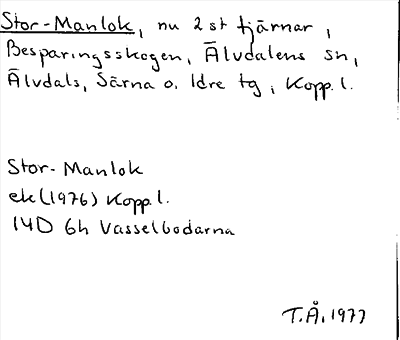 Stor-Manlok, nu 2 st tjärnar,
Besparingsskogen, Älvdalens sn,
Älvdals, Särna o. Idre tg, Kopp. l.
Stor-Manlok
ek (1976) Kopp. l.
14D 6h Vasselbodarna
T.Å. 1977